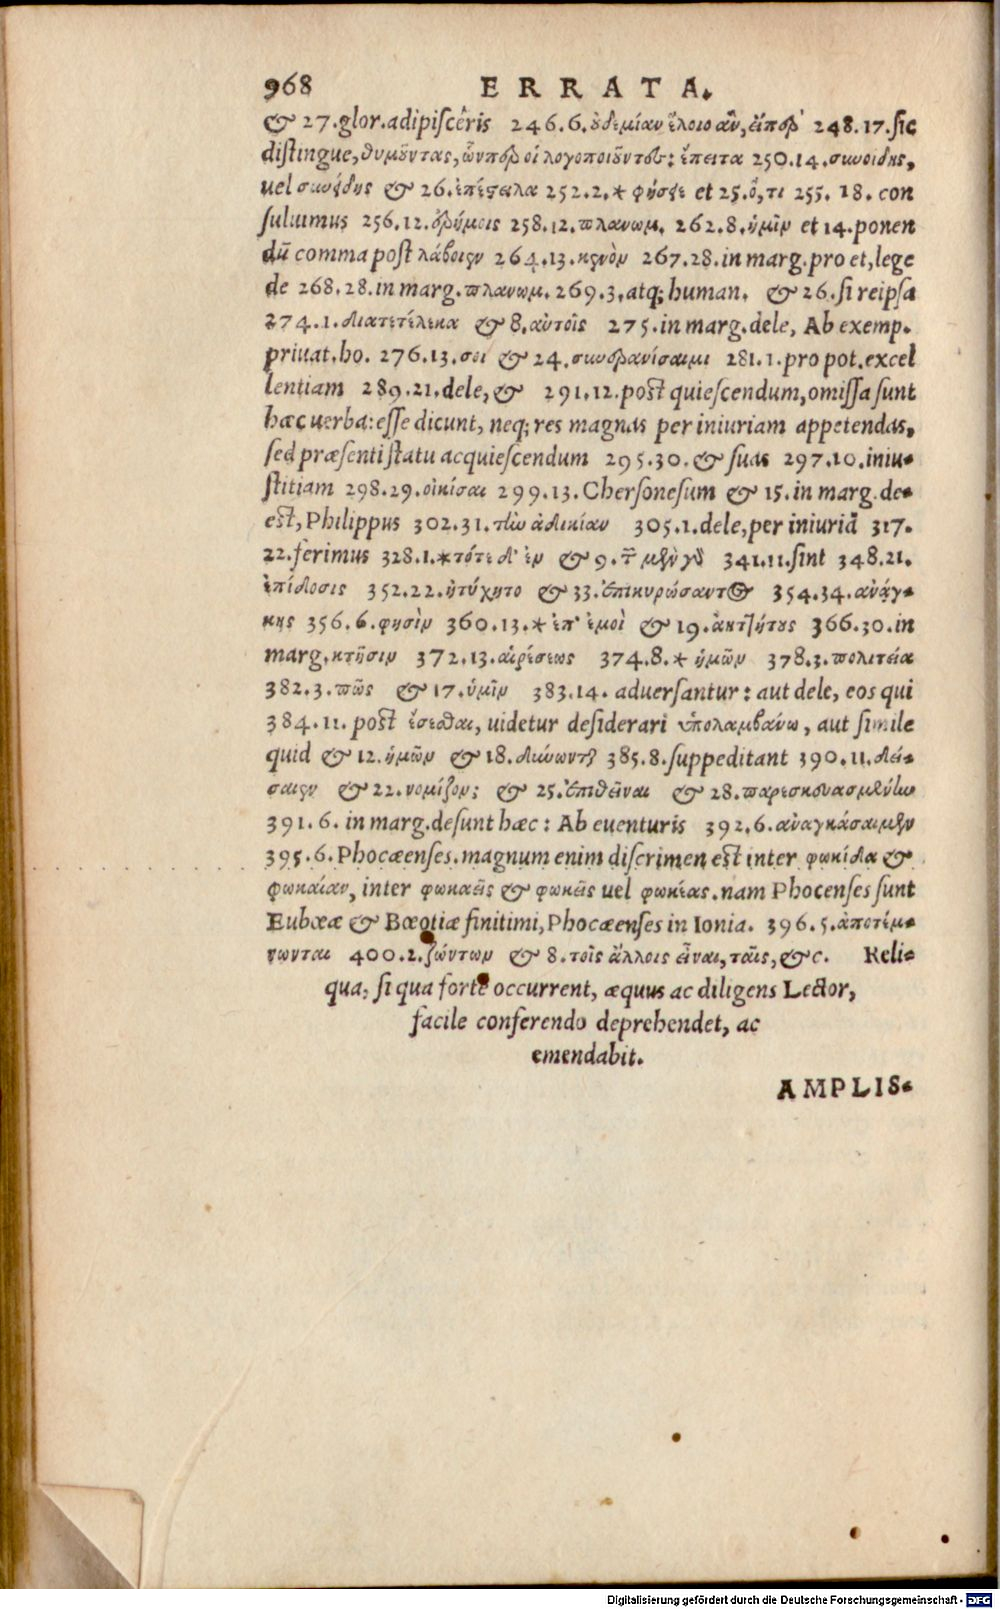 968 ERRATA.
& 27.glor.adipiscêris 246.6.οὐδεμίαν ἕλοιο ἂν, εἴπερ 248.17.sic
distingue, θυμοῦντας, ὧνπερ οἱ λογοποιοῦντες: ἔπειτα 250.14.συνοίδης,
uel συνῄδης & 26.ἐπέστειλα 252.2.* φήσειε et 25.ὅ,τι 255. 18. con
suluimus 256.12.ἐρήμοις 258.12.πλανωμ. 262.8.ἡμῖν et 14.ponen
dū comma post λάβοιεν 264.13.κενὸν 267.28.in marg.pro et,lege
de 268.28.in marg.πλανωμ.269.3.atq; human. & 26.si reipsa
274.1.διατετέλεκα & 8.αὐτοῖς 275.in marg.dele, Ab exemp.
priuat.ho. 276.13.σοι & 24. 281.1.pro pot.excel
lentiam 289.21.dele,& 291.12.post quiescendum,omissa sunt
hæc uerba: esse dicunt, neq; res magnas per iniuriam appetendas,
sed præsenti statu acquiescendum 295.30.& suas 297.10.iniu-
stitiam 298.29.οἰκίσαι 299.13.Chersonesum & 15.in marg.de-
est, Philippus 302.31.τὴν ἀδικίαν 305.1.dele,per iniuriā 317.
22.ferimus 328.1.*τότε δ' ἐν & 9.τ̃ μὲν γὸ 341.11.sint 348.21.
ἐπίδοσις 352.22.ητύχητο & 33.ἐπικυρώσαντος 354.34.ἀνάγ-
κης 356.6.φησὶν 360.13.* ἐπ' ἐμοὶ & 19. 366.30.in
marg.κτῆσιν 372.13.αἱρέσεως 374.8.* ἡμῶν 378.3.πολιτεία
382.3.πῶς & 17.ὑμῖν 383.14. aduersantur: aut dele, eos qui
384.11. post ἔσεσθαι, uidetur desiderari ὑπολαμβάνω, aut simile
quid & 12.ἡμῶν & 18. 385.8.suppeditant 390.11.δεί-
σαιεν & 22.νομίζον; & 25.ἐπιθεῖναι & 28.παρεσκευασμένην
391.6. in marg.desunt hæc: Ab euenturis 392.6.ἀναγκάσαιμεν
395.6.Phocæenses.magnum enim discrimen est inter φωκίδα &
φωκαίαν, inter φωκαεῖς & φωκεῖς uel φωκέας.nam Phocenses sunt
Eubœæ & Bœotiæ finitimi, Phocæenses in Ionia. 396.5.ἀποτέμ-
νωνται 400.2.ζώντων & 8.τοῖς ἄλλοις εἶναι, ταῖς,&c. Reli-
qua, si qua forte occurrent, æquus ac diligens Lector,
facile conferendo deprehendet, ac
emendabit.
AMPLIS-
Digitalisierung gefördert durch die Deutsche Forschungsgemeinschaft - DFG